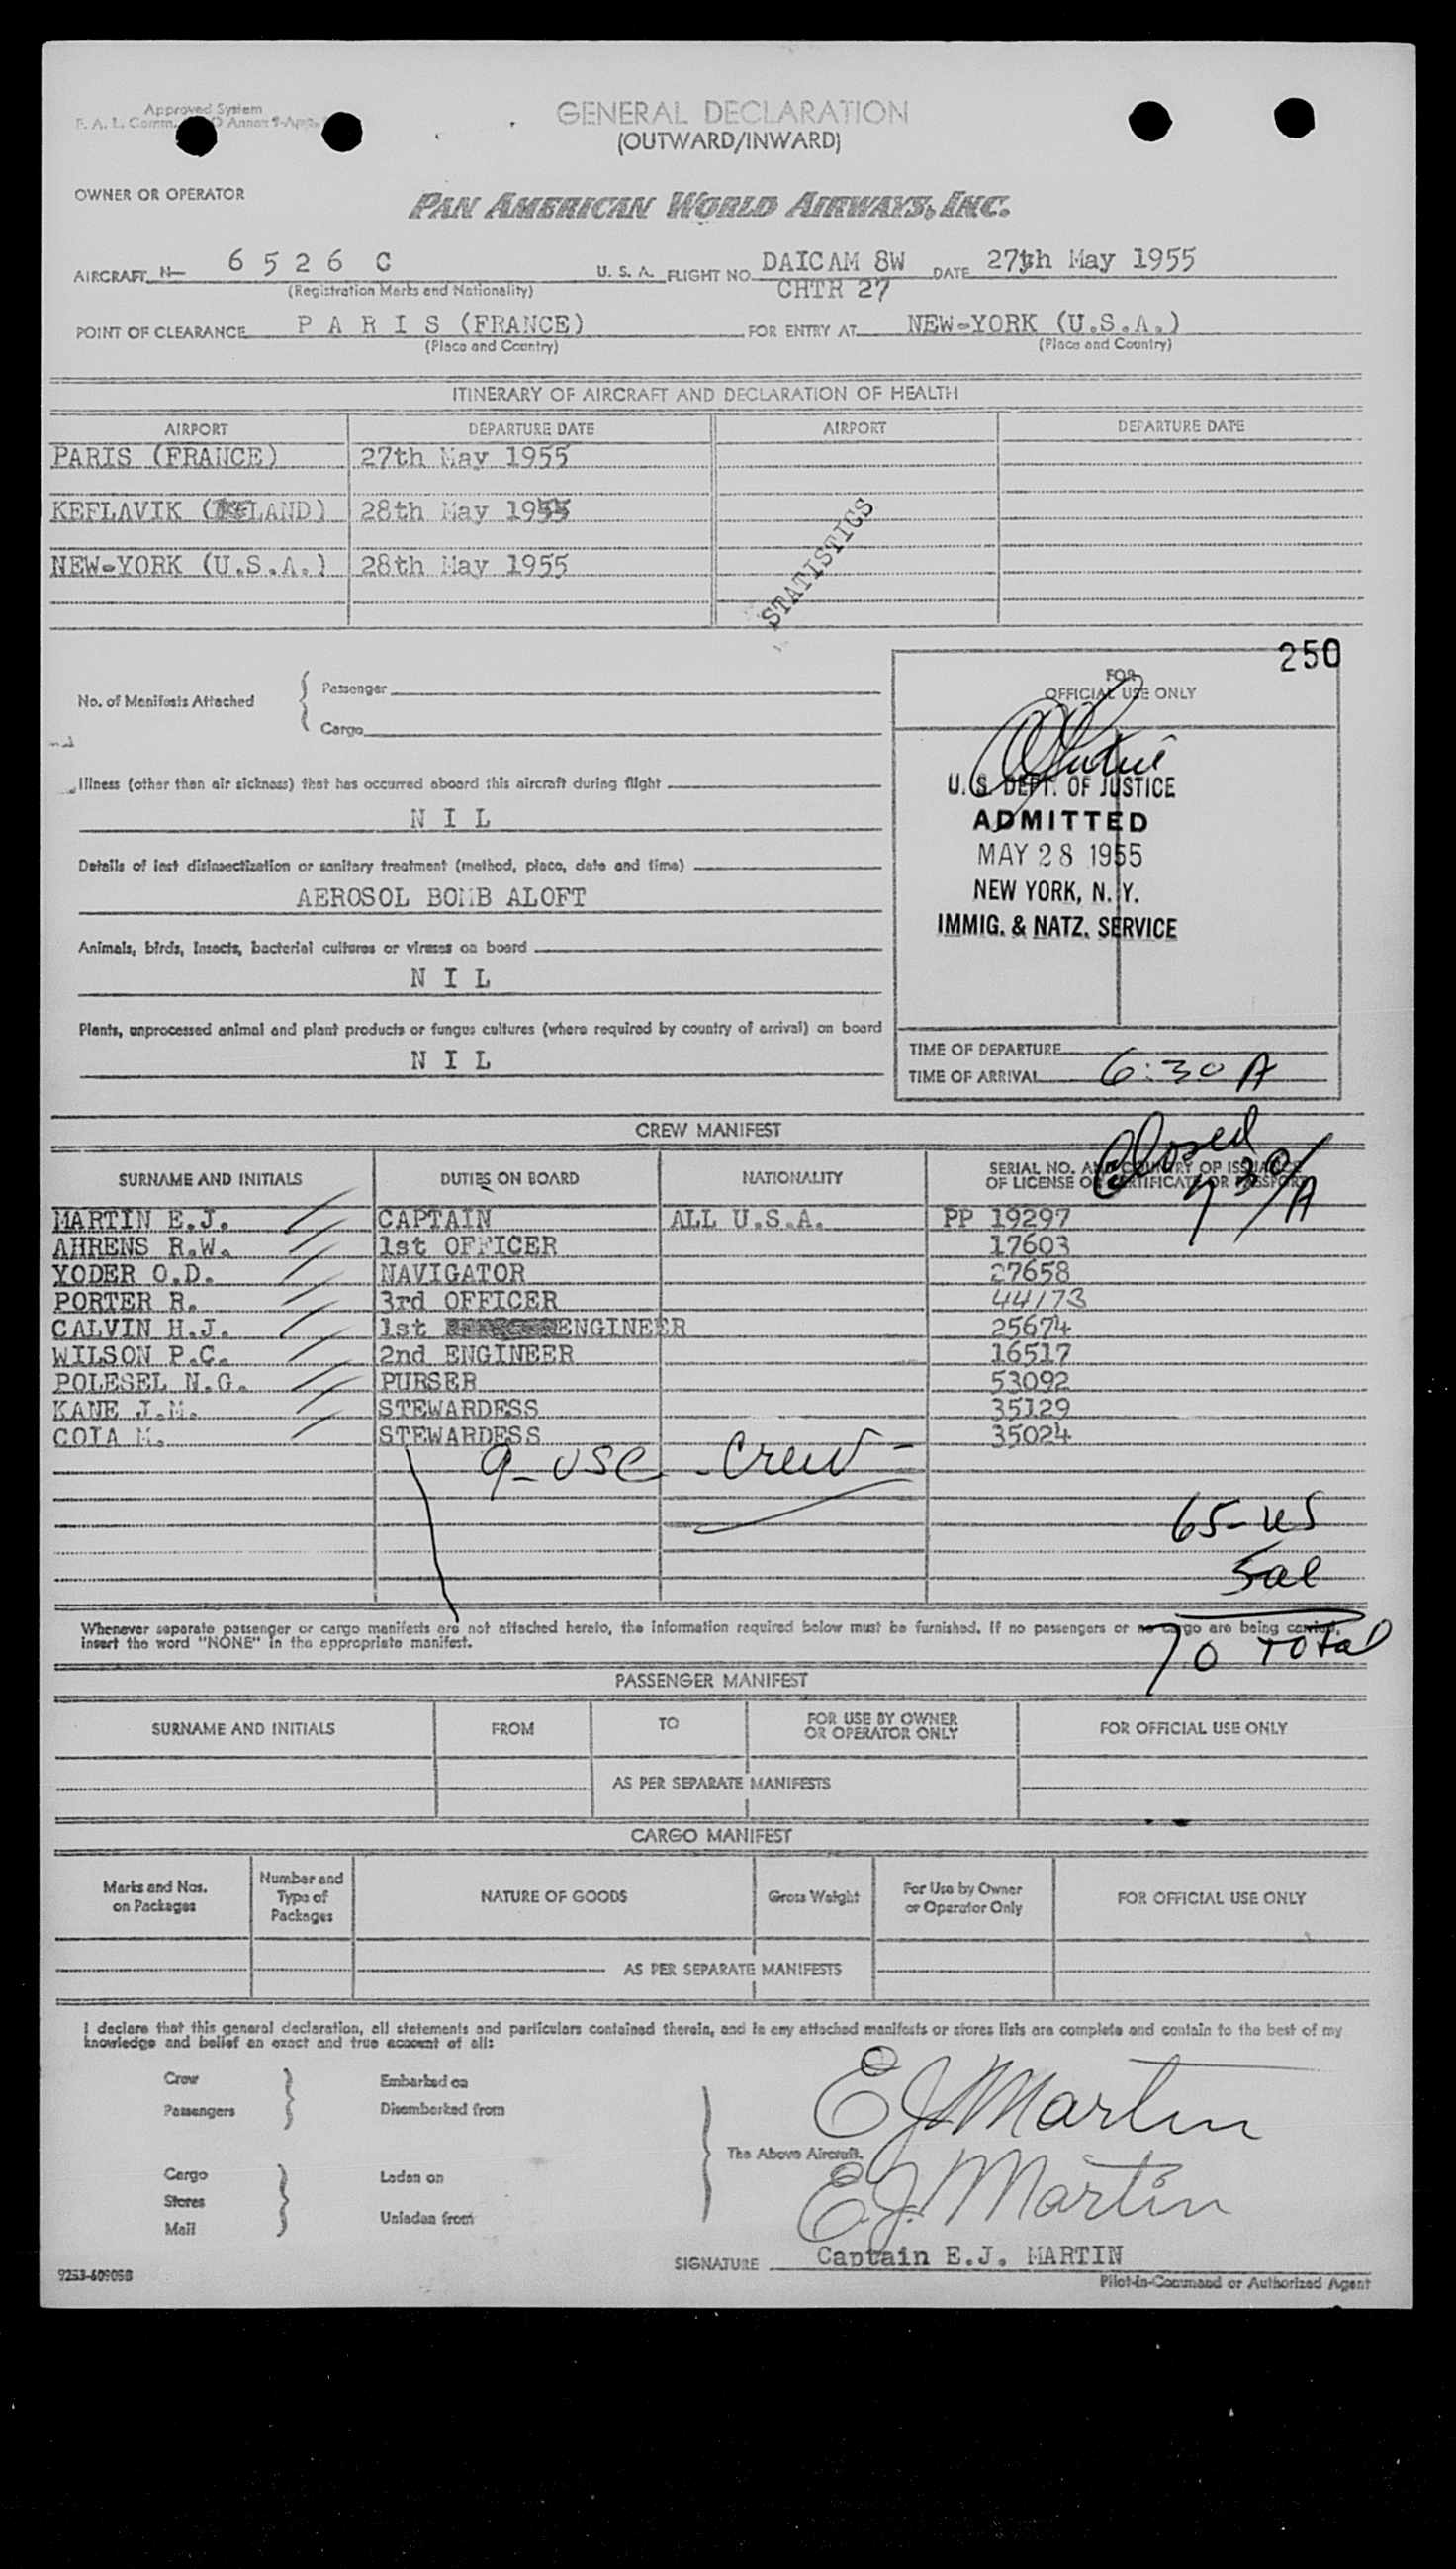 Approved System
F. A. L. Comm. O Annex 9-App.
GENERAL DECLARATION
(OUTWARD/INWARD)
OWNER OR OPERATOR
PAN AMERICAN WORLD AIRWAYS, INC.
AIRCRAFT N— 6 5 2 6 C U. S. A. FLIGHT NO. DAICAM 8W DATE 27th May 1955
(Registration Marks and Nationality) CHTR 27
POINT OF CLEARANCE P A R I S (FRANCE) FOR ENTRY AT NEW-YORK (U.S.A.)
(Place and Country) (Place and Country)
ITINERARY OF AIRCRAFT AND DECLARATION OF HEALTH
AIRPORT DEPARTURE DATE AIRPORT DEPARTURE DATE
PARIS (FRANCE) 27th May 1955
KEFLAVIK (ICELAND) 28th May 1955
NEW-YORK (U.S.A.) 28th May 1955
STATISTICS
250
No. of Manifests Attached
Passenger
Cargo
FOR
OFFICIAL USE ONLY
Illness (other than air sickness) that has occurred aboard this aircraft during flight
N I L
Details of last disinsectization or sanitary treatment (method, place, date and time)
AEROSOL BOMB ALOFT
Animals, birds, insects, bacterial cultures or viruses on board
N I L
Plants, unprocessed animal and plant products or fungus cultures (where required by country of arrival) on board
N I L
U. S. DEPT. OF JUSTICE
ADMITTED
MAY 28 1955
NEW YORK, N. Y.
IMMIG. & NATZ. SERVICE
TIME OF DEPARTURE
TIME OF ARRIVAL 6:30 A
Closed
7 30/A
CREW MANIFEST
SURNAME AND INITIALS DUTIES ON BOARD NATIONALITY SERIAL NO. AND COUNTRY OF ISSUANCE
OF LICENSE OR CERTIFICATE OR PASSPORT
MARTIN E.J. CAPTAIN ALL U.S.A. PP 19297
AHRENS R.W. 1st OFFICER 17603
YODER O.D. NAVIGATOR 27658
PORTER R. 3rd OFFICER 44173
CALVIN H.J. 1st ENGINEER 25674
WILSON P.C. 2nd ENGINEER 16517
POLESEL N.G. PURSER 53092
KANE J.M. STEWARDESS 35129
COTA M. STEWARDESS 35024
9-USC Crew -
65-US
5al
70 Total
Whenever separate passenger or cargo manifests are not attached hereto, the information required below must be furnished. If no passengers or no cargo are being carried,
insert the word "NONE" in the appropriate manifest.
PASSENGER MANIFEST
SURNAME AND INITIALS FROM TO FOR USE BY OWNER
OR OPERATOR ONLY FOR OFFICIAL USE ONLY
AS PER SEPARATE MANIFESTS
CARGO MANIFEST
Marks and Nos.
on Packages
Number and
Type of
Packages
NATURE OF GOODS
Gross Weight
For Use by Owner
or Operator Only
FOR OFFICIAL USE ONLY
AS PER SEPARATE MANIFESTS
I declare that this general declaration, all statements and particulars contained therein, and in any attached manifests or stores lists are complete and contain to the best of my
knowledge and belief an exact and true account of all:
Crew Embarked on
Passengers Disembarked from
The Above Aircraft.
Cargo Laden on
Stores
Mail Unladen from
E J Martin
E.J. Martin
SIGNATURE Captain E.J. MARTIN
Pilot-in-Command or Authorized Agent
9253-60905B